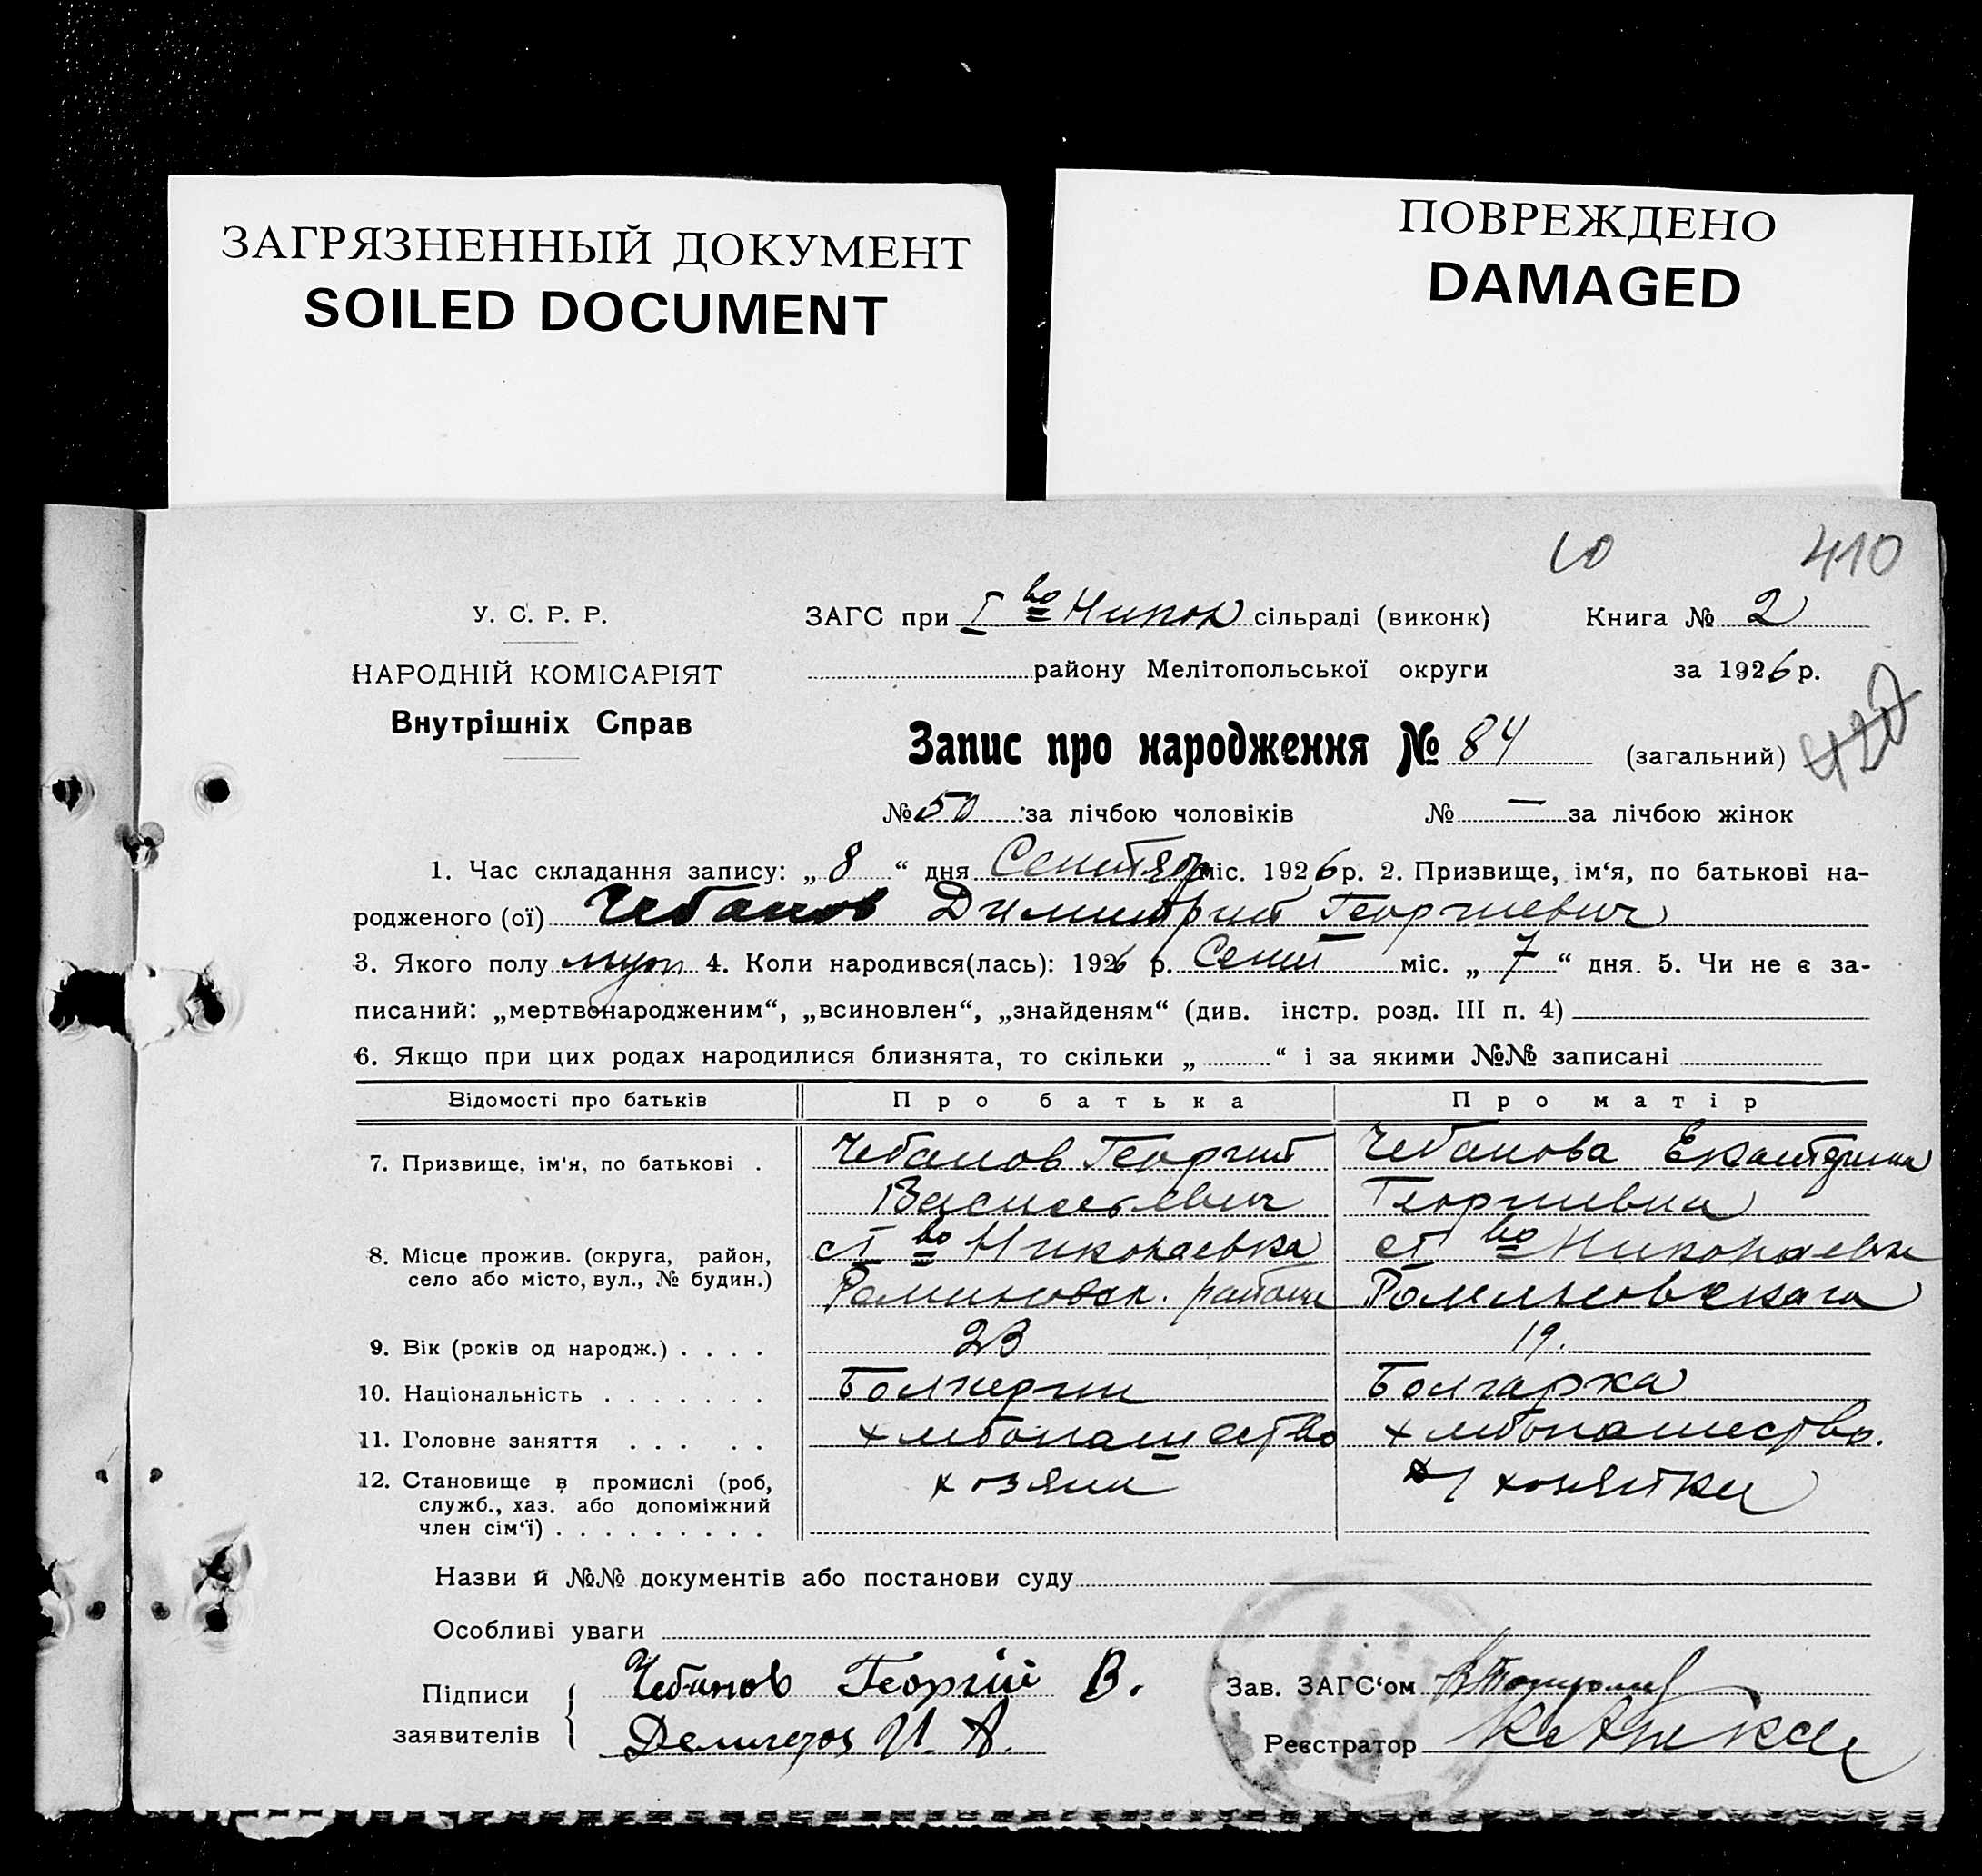 ЗАГРЯЗНЕННЫЙ ДОКУМЕНТ
SOILED DOCUMENT
ПОВРЕЖДЕНО
DAMAGED
410
У. С. Р. Р.
ЗАГС при I во Никол сільраді (виконк)
Книга № 2
НАРОДНІЙ КОМІСАРІЯТ
району Мелітопольської округи
за 1926 р.
Внутрішніх Справ
Запис про народження № 84 (загальний)
420
№ 50 за лічбою чоловіків № — за лічбою жінок
1. Час складання запису: „ 8 “ дня Сентябр міс. 1926 р. 2. Призвище, ім‘я, по батькові на-
родженого (ої) Чебанов Димитрий Георгиевич
3. Якого полу муж 4. Коли народився(лась): 1926 р. Сент міс. „ 7 “ дня. 5. Чи не є за-
писаний: „мертвонародженим“, „всиновлен“, „знайденям“ (див. інстр. розд. III п. 4)
6. Якщо при цих родах народилися близнята, то скільки „ “ і за якими №№ записані
Відомості про батьків Про батька Про матір
7. Призвище, ім'я, по батькові . Чебанов Георгий Чебанова Екатерина
Васильевич Георгиевна
8. Місце прожив. (округа, район, ст во Николаевка ст во Николаевка
село або місто, вул., № будин.) района
9. Вік (років од народж.) . . . . 23 19.
10. Національність . . . . . . . Болгарин Болгарка
11. Головне заняття . . . . . хлебопашество хлебопашество.
12. Становище в промислі (роб, хозяин хозяйка
служб., хаз. або допоміжний
член сім‘ї) . . . . . . . . .
Назви й №№ документів або постанови суду
Особливі уваги
Підписи
заявителів
Чебанов Георгій В.
И. А.
Зав. ЗАГС‘ом
Реєстратор